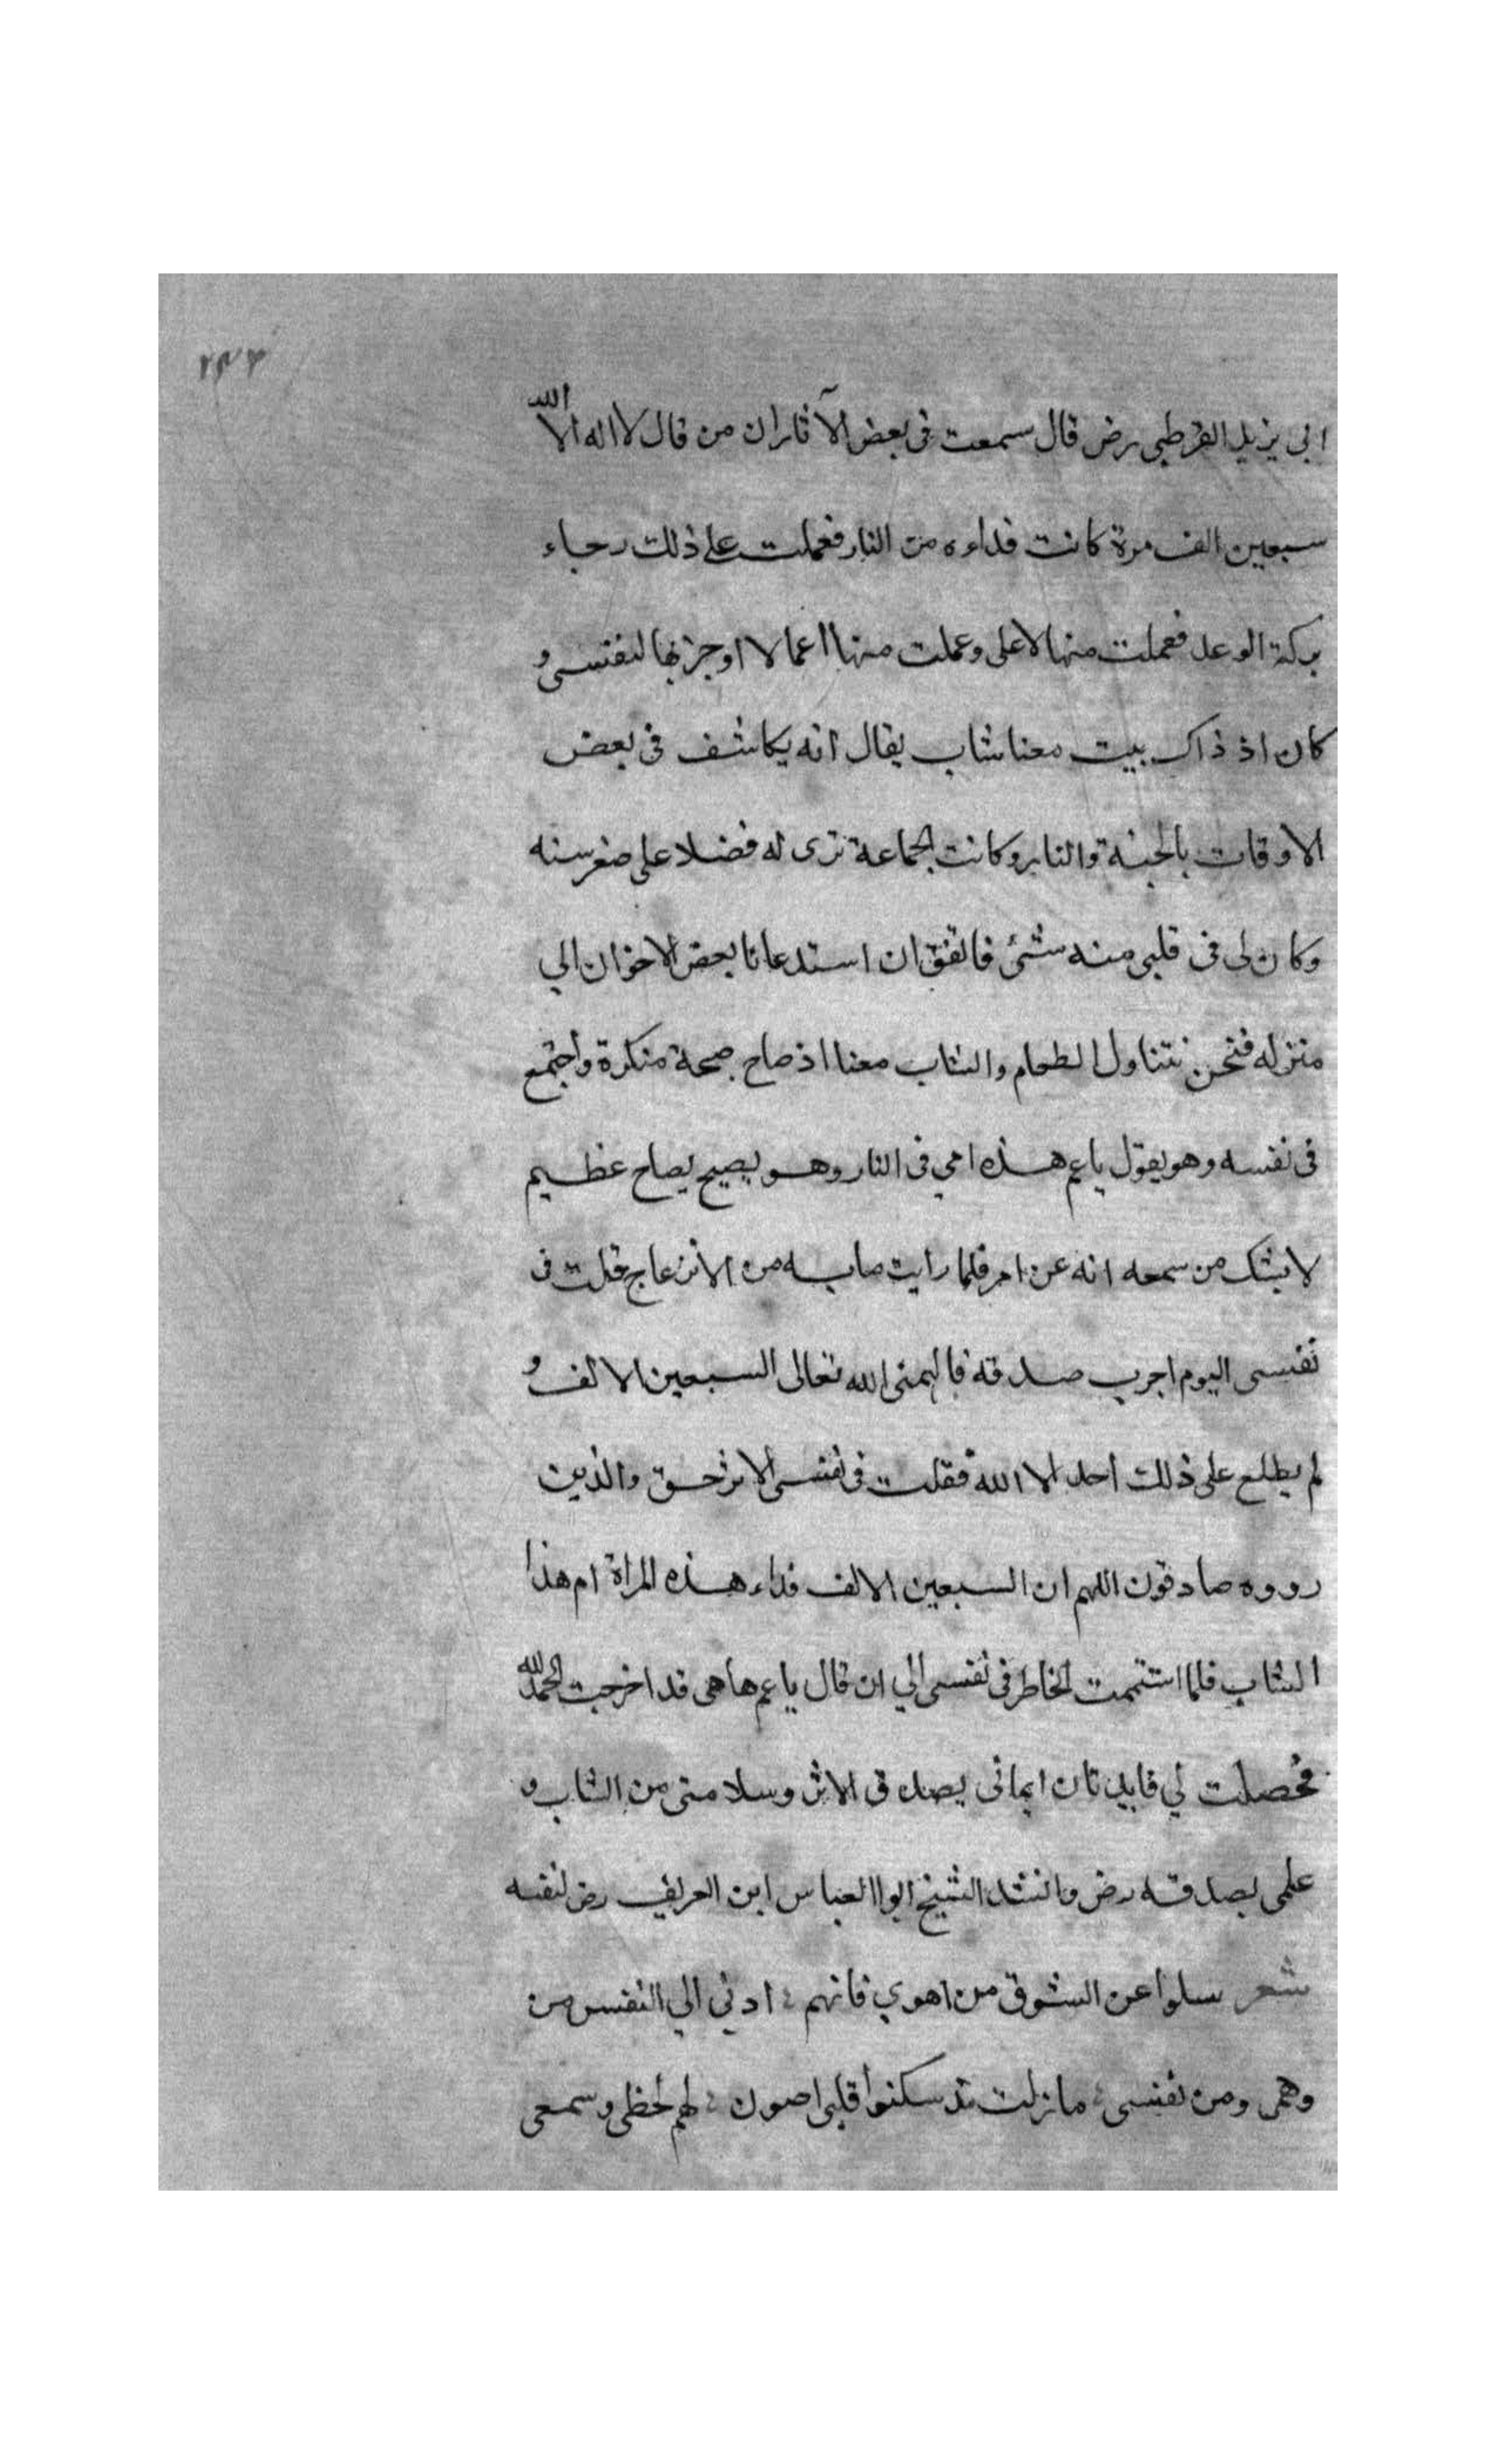 ٢٣٣
ابى يزيد القرطبى رض قال سمعت فى بعض الآثار ان من قال لا اله الا الله
سبعين الف مرة كانت فداءه من النار فعملت على ذلك رجاء
بركة الوعد فعملت منها لاهلى وعملت منها اعمالا ادخرتها لنفسى و
كان اذ ذاك يبيت معنا شاب يقال انه يكاشف فى بعض
الاوقات بالجنة والنار وكانت الجماعة ترى له فضلا على صغر سنه
وكان لى فى قلبى منه شئ فاتفق ان استدعانا بعض الاخوان الي
منزله فنحن نتناول الطعام والشاب معنا اذ صاح صيحة منكرة واجتمع
فى نفسه وهو يقول ياعم هذه امي فى النار وهو يصيح بصياح عظيم
لا يشك من سمعه انه عن امر فلما رايت مابه من الانزعاج قلت فى
نفسى اليوم اجرب صدقه فالهمنى الله تعالى السبعين الالف و
لم يطلع على ذلك احد الا الله فقلت فى نفسى الاثر حق والذين
رووه صادقون اللهم ان السبعين الالف فداء هذه المراة ام هذا
الشاب فلما استتممت الخاطر فى نفسى الي ان قال ياعم هاهى قد اخرجت الحمد لله
فحصلت لي فايدتان ايمانى بصدق الاثر وسلامتى من الشاب و
علمى بصدقه رض وانشد الشيخ ابوا العباس ابن العريف رض لنفسه
شعر سلوا عن الشوق من اهوي فانهم ؛ ادني الي النفس من
وهمى ومن نفسى ؛ مازلت مذ سكنوا قلبى اصون ؛ لهم لحظى وسمعى